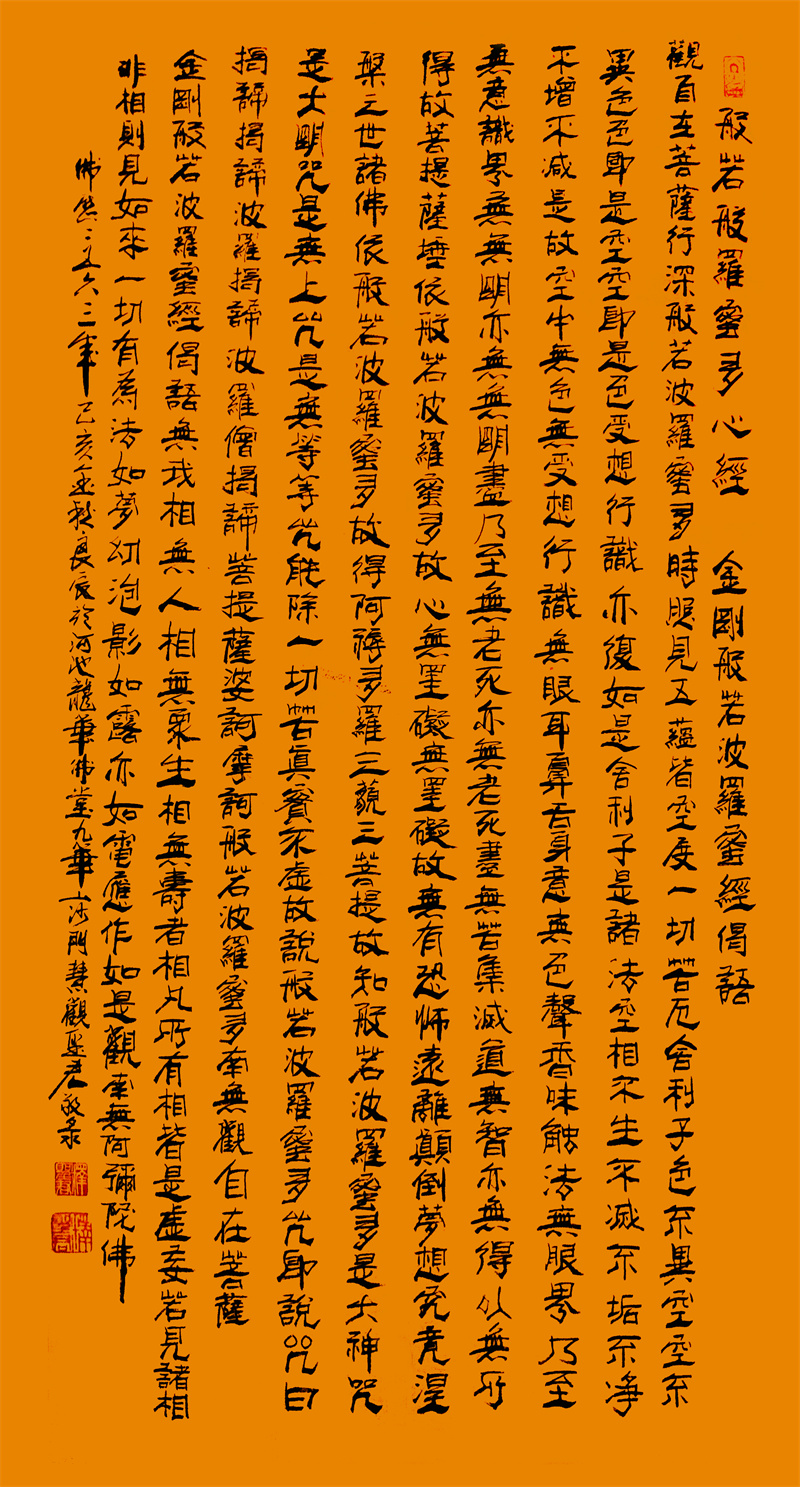 般若般羅蜜多心經 金剛般若波羅蜜經偈語
觀自在菩薩行深般若波羅蜜多時照見五蘊皆空度一切苦厄舍利子色不異空空不
異色色即是空空即是色受想行識亦復如是舍利子是諸法空相不生不滅不垢不净
不增不減是故空中無色無受想行識無眼耳鼻舌身意無色聲香味觸法無眼界乃至
無意識界無無明亦無無明盡乃至無老死亦無老死盡無苦集滅道無智亦無得以無所
得故菩提薩埵依般若波羅蜜多故心無罣礙無罣礙故無有恐怖遠離顛倒夢想究竟涅
槃三世諸佛依般若波羅蜜多故得阿耨多羅三藐三菩提故知般若波羅蜜多是大神咒
是大明咒是無上咒是無等等咒能除一切苦真實不虛故說般若波羅蜜多咒即說咒曰
揭諦揭諦波羅揭諦波羅僧揭諦菩提薩婆訶摩訶般若波羅蜜多南無觀自在菩薩
金剛般若波羅蜜經偈語無我相無人相無眾生相無壽者相凡所有相皆是虛妄若見諸相
非相則見如來一切有為法如夢幻泡影如露亦如電應作如是觀南無阿彌陀佛
佛歷二五六三年己亥金秋良辰於河池龍華佛堂九華山沙門慧觀聖君敬录